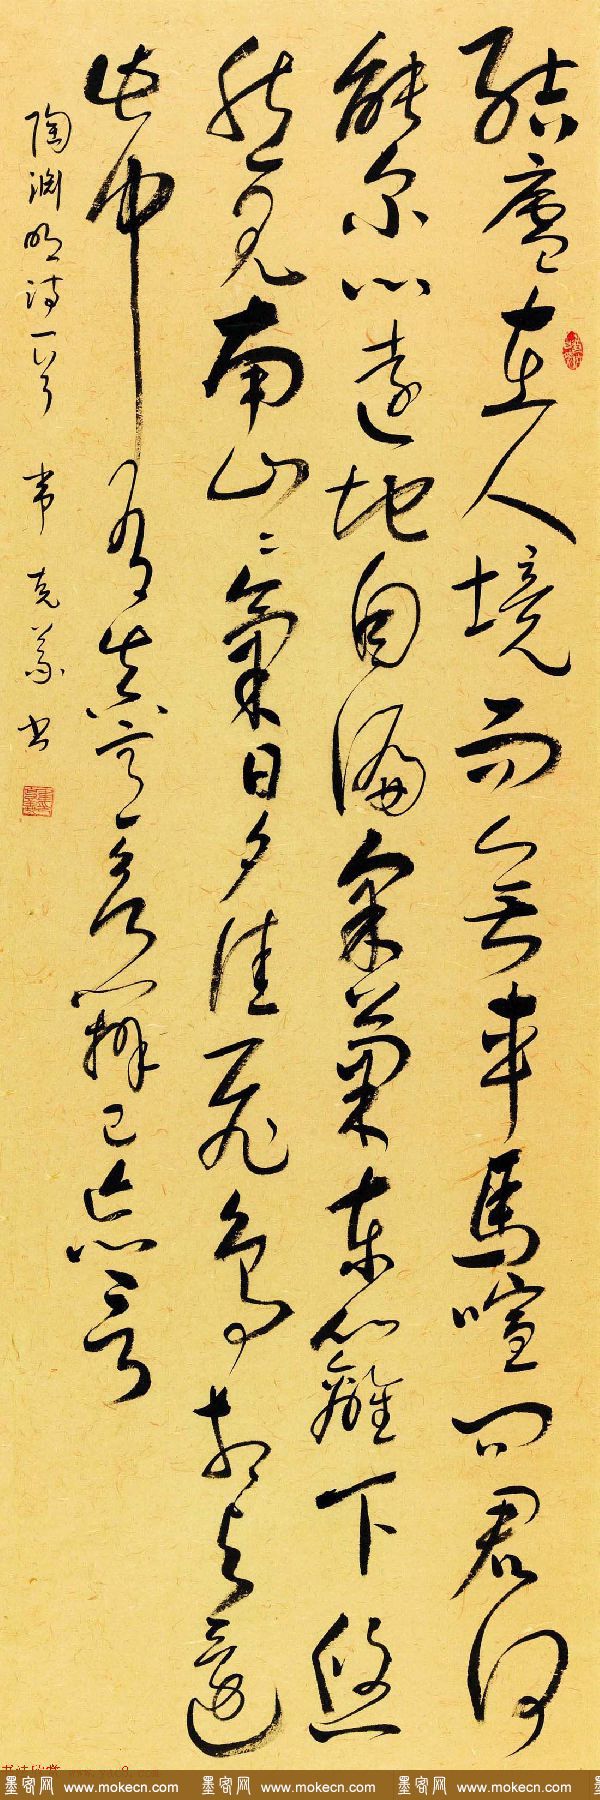 結廬在人境而無車馬喧問君何
能尔心遠地自偏采菊東籬下悠
然見南山山氣日夕佳飛鳥相與還
此中有真意欲辨已忘言
陶渊明诗一首 韦克义书
墨客网 www.mokecn.com 墨客网 www.mokecn.com 墨客网 www.mokecn.com